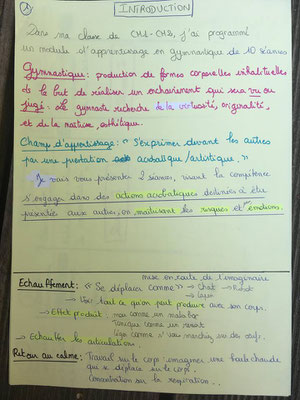 ①
INTRODUCTION
Dans ma classe de CM1-CM2, j'ai programmé
un module d'apprentissage en gymnastique de 10 séances
Gymnastique: production de formes corporelles inhabituelles
ds le but de réaliser un enchaînement qui sera vu ou
jugé. Le gymnaste recherche de la virtuosité, originalité,
et de la maîtrise, esthétique.
Champ d'apprentissage: "S'exprimer devant les autres
par une prestation acrobatique/artistique."
Je vais vous présenter 2 séances, visant la compétence
s'engager dans des actions acrobatiques destinées à être
présentée aux autres, en maîtrisant les risques et les émotions.
mise en route de l'imaginaire
Echauffement: "Se déplacer comme" → Chat → Robot
→ Lapin
→ Vers tout ce qu'on peut produire avec son corps.
→ Effet produit: mou comme un malabar
Tonique comme un ressort
léger comme si vous marchiez sur des œufs.
→ Echauffer les articulations
Retour au calme: Travail sur le corps: imaginez une boule chaude
qui se déplace sur le corps.
Concentration sur la respiration.